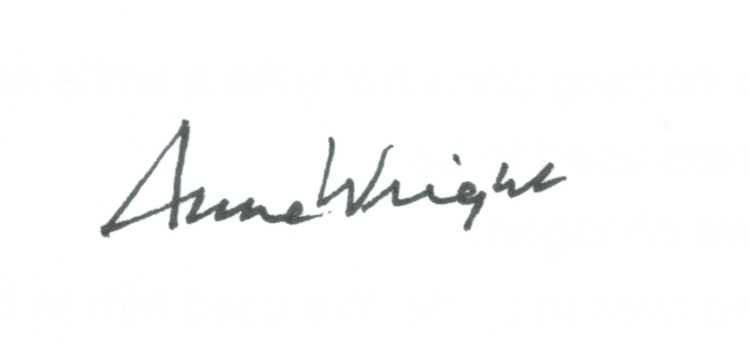 Anne Wright